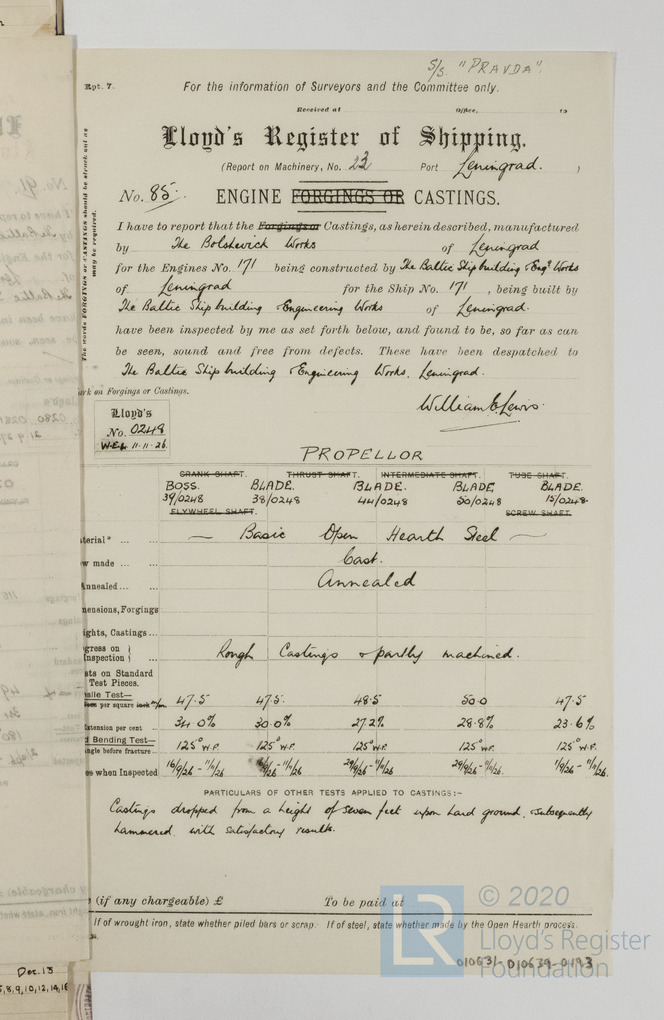 S/S. "PRAVDA".
Rpt. 7.
For the information of Surveyors and the Committee only.
Received at Office, 19
Lloyd's Register of Shipping.
(Report on Machinery, No. 23 Port Leningrad. )
No. 85. ENGINE FORGINGS OR CASTINGS.
The words FORGINGS or CASTINGS should be struck out as may be required.
I have to report that the Forgings or Castings, as herein described, manufactured
by The Bolshevick Works of Leningrad
for the Engines No. 171 being constructed by The Baltic Shipbuilding & Engg Works
of Leningrad for the Ship No. 171, being built by
The Baltic Shipbuilding & Engineering Works of Leningrad.
have been inspected by me as set forth below, and found to be, so far as can
be seen, sound and free from defects. These have been despatched to
The Baltic Shipbuilding & Engineering Works, Leningrad.
ark on Forgings or Castings.
William E Lewis.
Lloyd's
No. 0248
W.E.L 11-11-26.
PROPELLOR
CRANK SHAFT. THRUST SHAFT. INTERMEDIATE SHAFT. TUBE SHAFT.
BOSS. BLADE. BLADE. BLADE. BLADE.
39/0248 38/0248 44/0248 50/0248 15/0248.
FLYWHEEL SHAFT. SCREW SHAFT
terial* ... ... Basic Open Hearth Steel
w made ... Cast.
Annealed... ... Annealed
mensions, Forgings
ights, Castings ...
gress on
Inspection ... Rough Castings & partly machined.
sts on Standard
Test Pieces.
sile Test—
per square 47.5 47.5. 48.5 50.0 47.5
Extension per cent 34.0% 30.0% 27.2% 28.8% 23.6%
d Bending Test—
ngle before fracture 125° W.P. 125° W.P. 125° W.P. 125° W.P. 125° W.P.
es when Inspected 16/9/26 - 11/11/26 29/9/26 - 11/11/26 29/9/26 - 11/11/26. 1/9/26 - 11/11/26.
PARTICULARS OF OTHER TESTS APPLIED TO CASTINGS:-
Castings dropped from a height of seven feet upon hard ground, & subsequently
hammered with satisfactory results.
(if any chargeable) £ To be paid at
If of wrought iron, state whether piled bars or scrap. If of steel, state whether made by the Open Hearth process.
© 2020
LR Lloyd's Register
Foundation
010631-010639-0193
Dec. 13
5,8,9,10,12,14,16